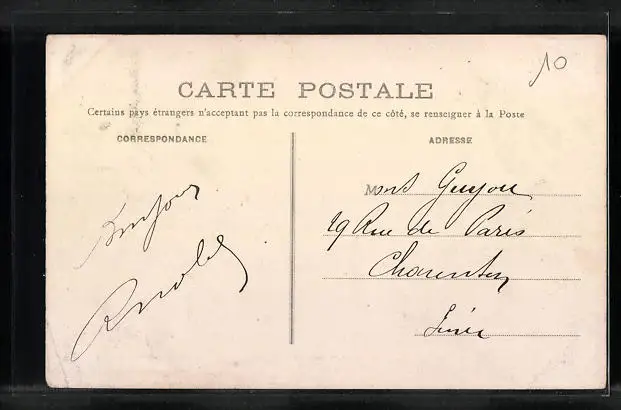 10
CARTE POSTALE
Certains pays étrangers n'acceptant pas la correspondance de ce côté, se renseigner à la Poste
CORRESPONDANCE
ADRESSE
Bonjour
Guyou
29 Rue de Paris
Charenton
Seine